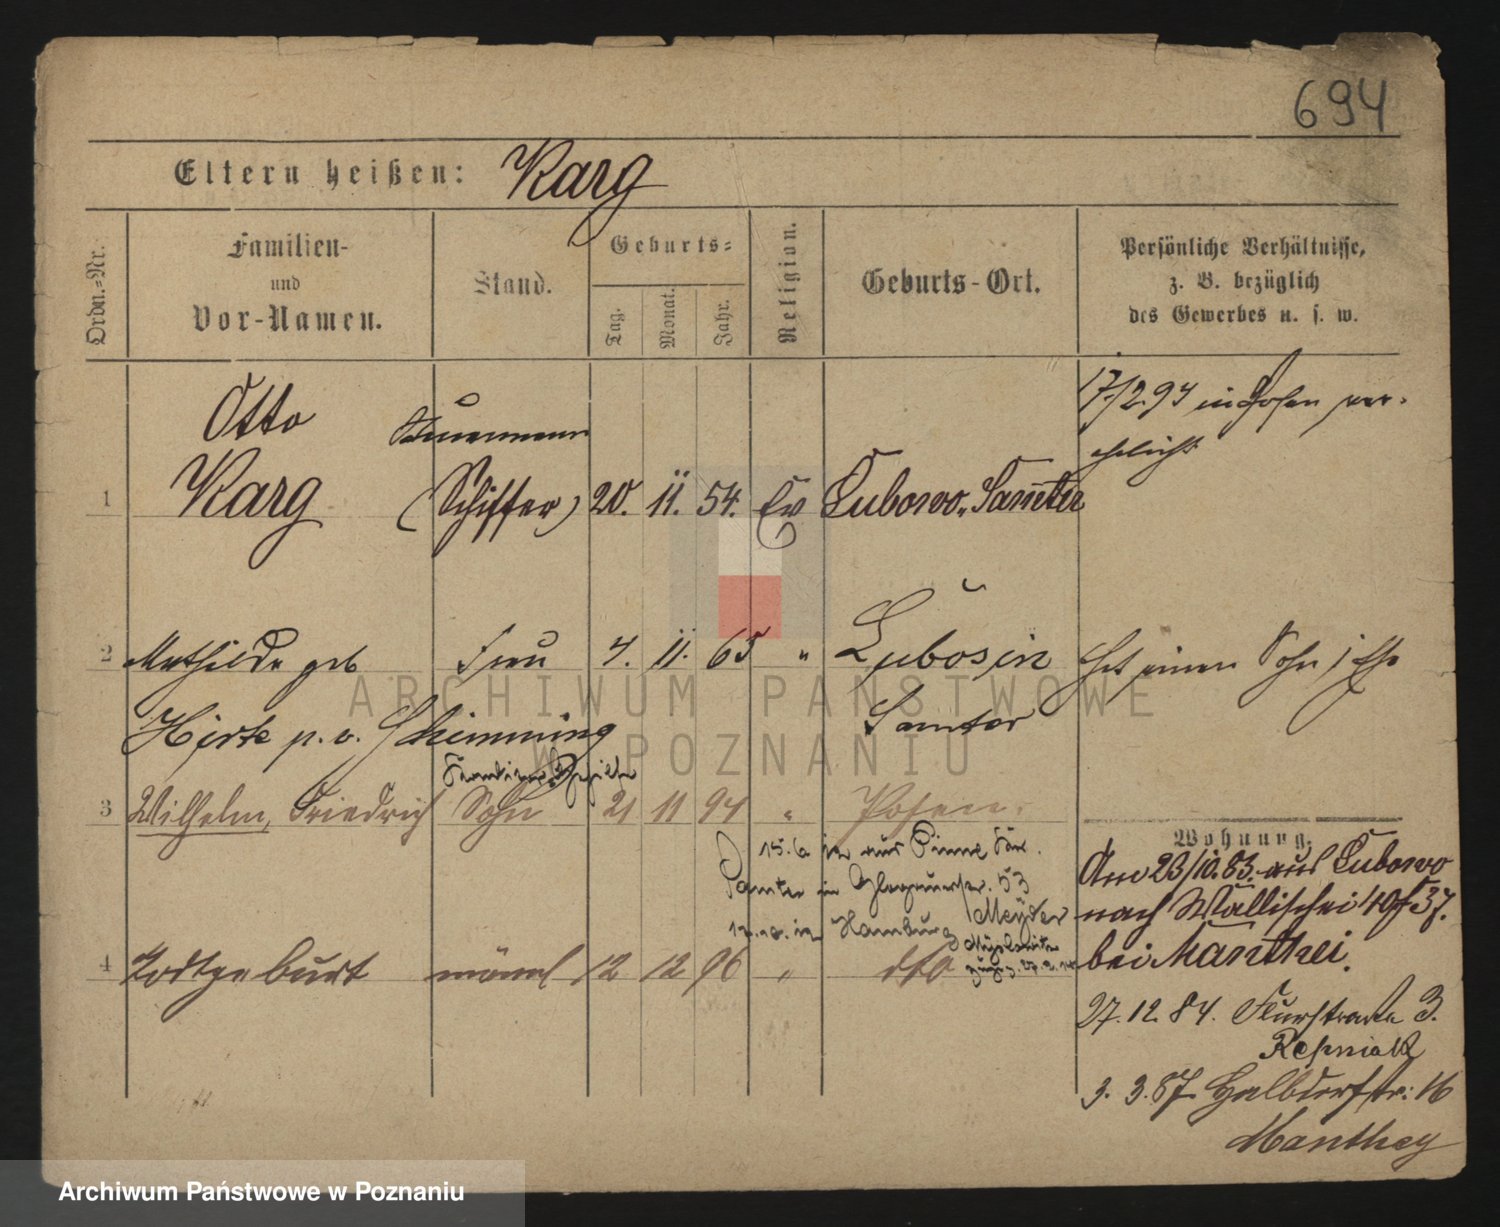 694
Eltern heißen: Karg
Ordn.-Nr.
Familien-
und
Vor-Namen.
Stand.
Geburts-
Tag.
Monat.
Jahr.
Religion.
Geburts-Ort.
Persönliche Verhältnisse,
z. B. bezüglich
des Gewerbes u. s. w.
17/2.94 in Posen ver-
ehelicht
Otto
Steuermann
1 Karg (Schiffer) 20. 11. 54. Ev Lubowo, Samter
2 Mathilde geb Frau 4. 11. 65 " Lubosin
hat einen Sohn
Hirte p. v. Schimming Samter
3 Wilhelm, Friedrich Sohn 21 11 94 " Posen.
15.6 aus Pinne
Samter in 53
Hamburg
4 Todtgeburt männl 12 12 96 " dto
Wohnung.
Am 23/10.83. aus Lubowo
nach Wallischei 40/37.
bei Manthei.
27.12.84. Flurstraße 3.
Repniak
3. 3.87 Halbdorfstr: 16
Manthey
ARCHIWUM PAŃSTWOWE
W POZNANIU
Archiwum Państwowe w Poznaniu